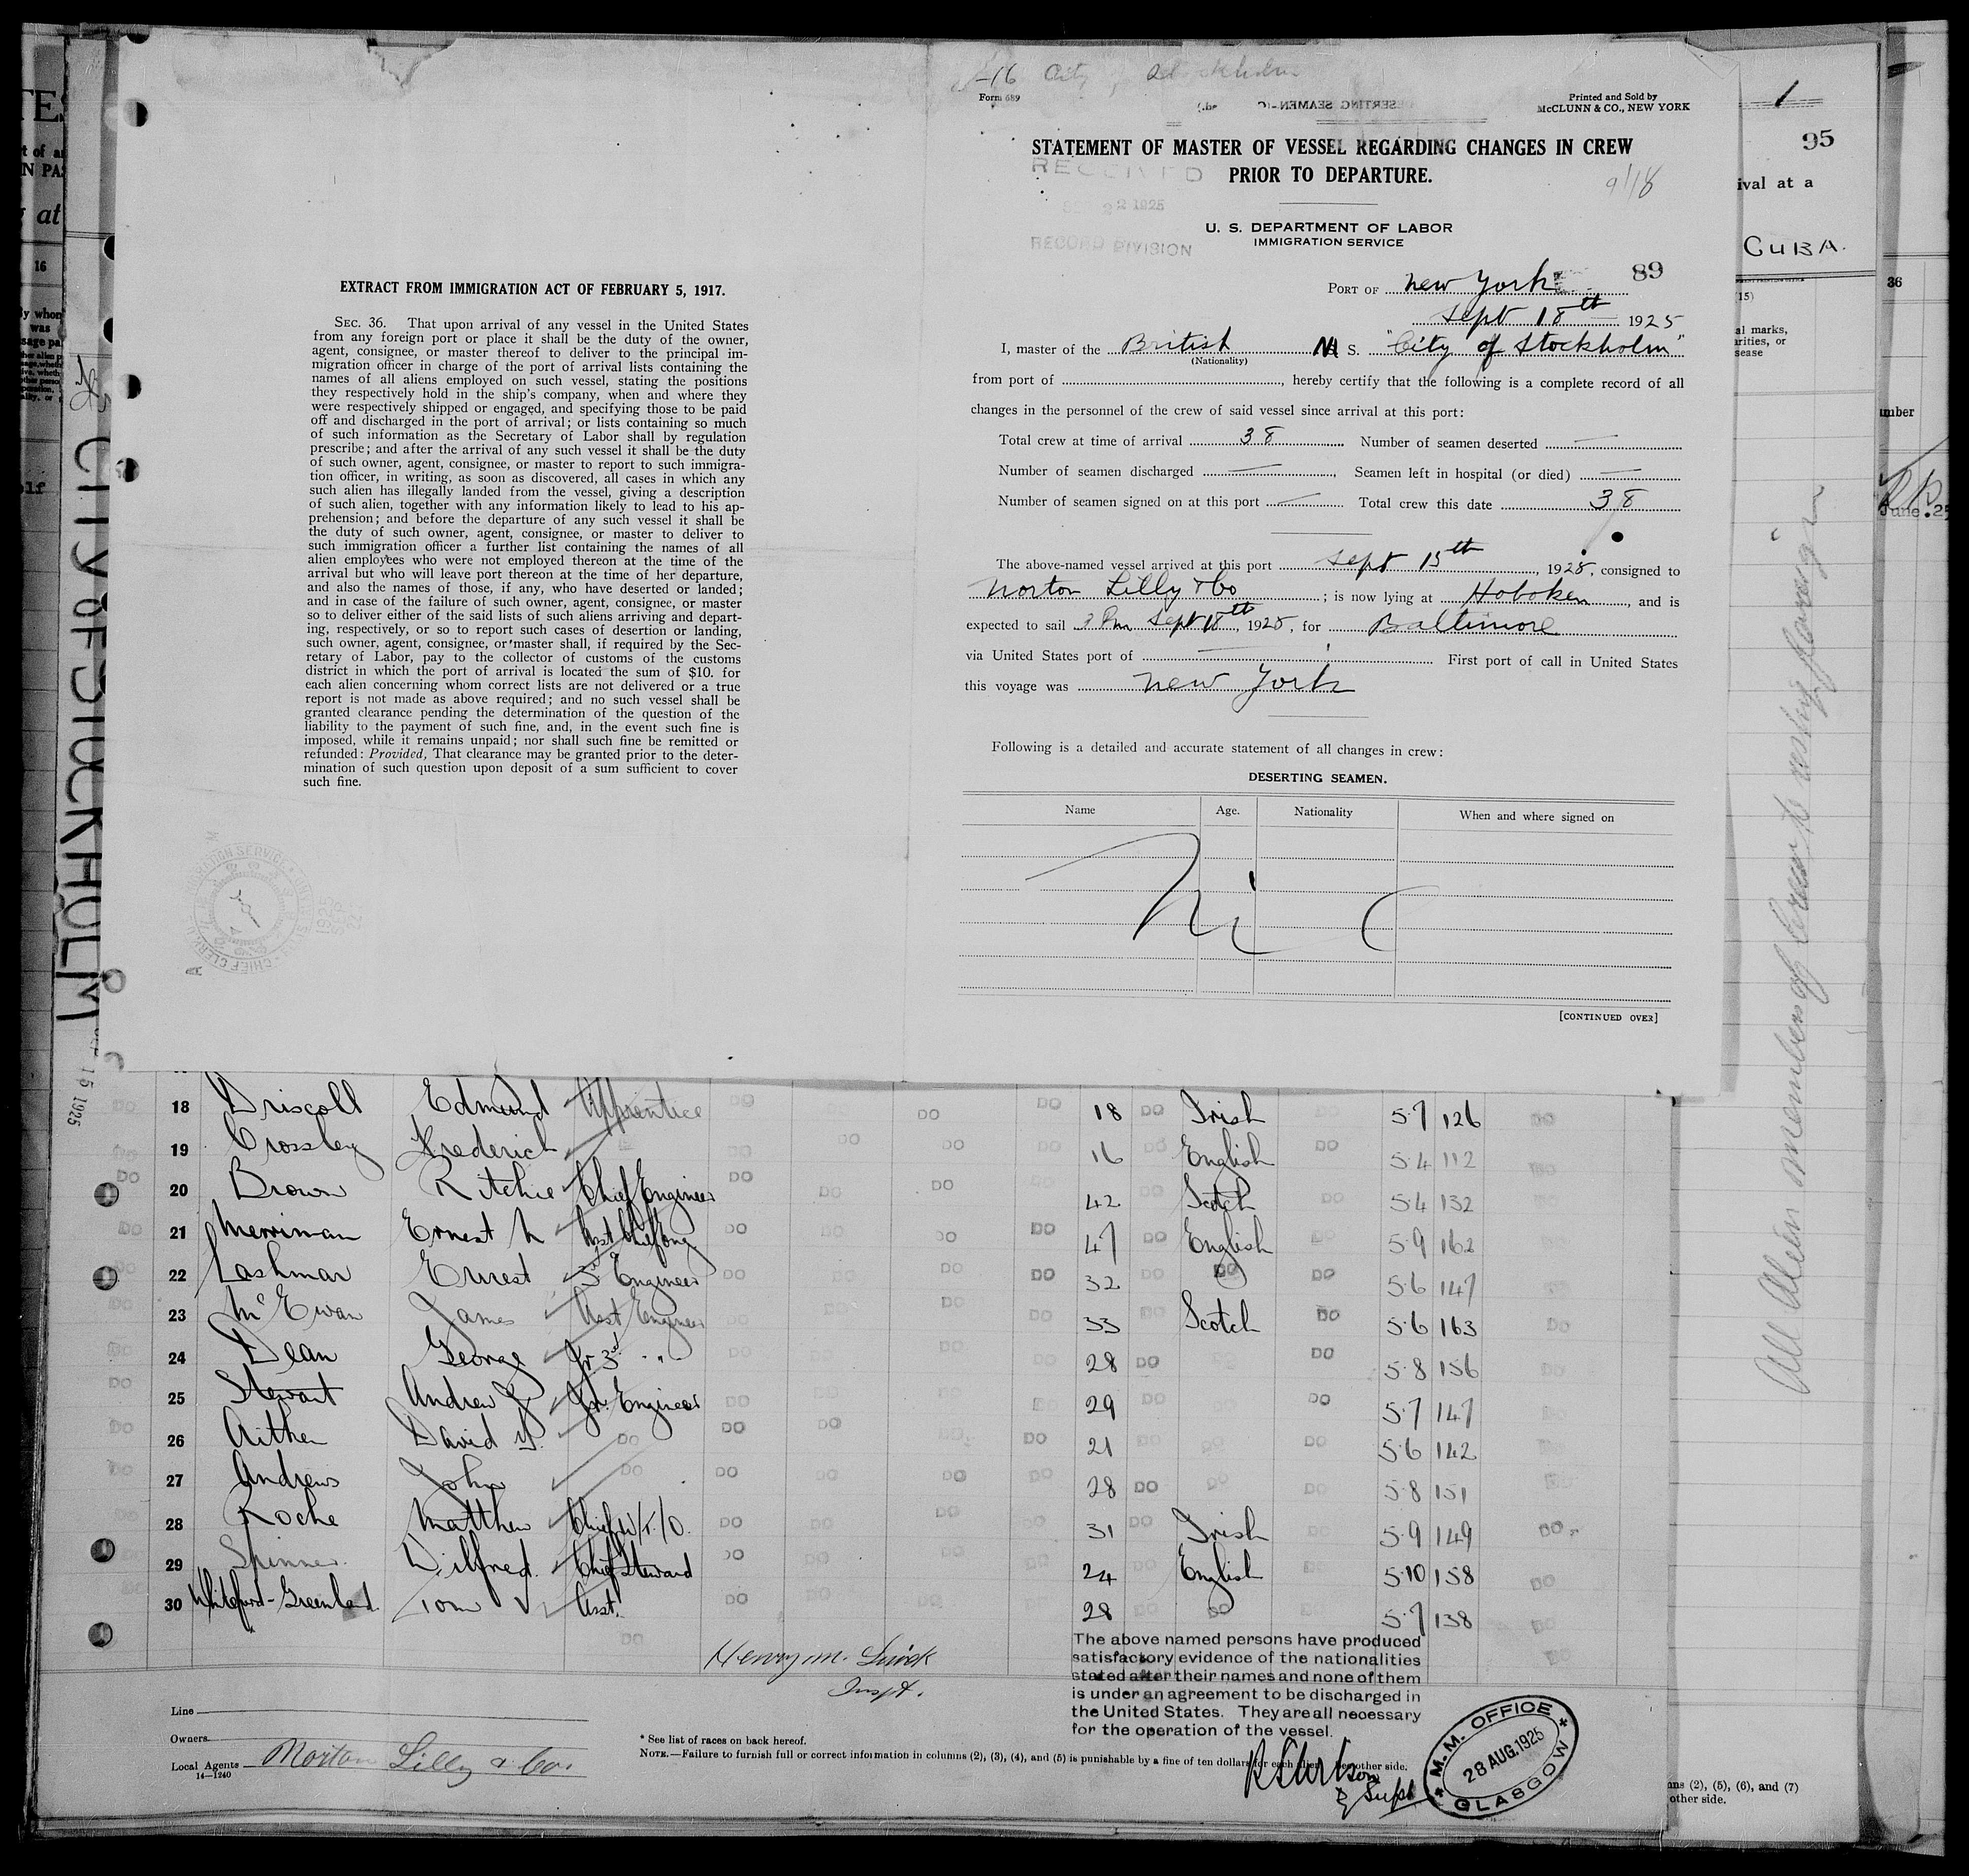 EXTRACT FROM IMMIGRATION ACT OF FEBRUARY 5, 1917.
SEC. 36. That upon arrival of any vessel in the United States
from any foreign port or place it shall be the duty of the owner,
agent, consignee, or master thereof to deliver to the principal im-
migration officer in charge of the port of arrival lists containing the
names of all aliens employed on such vessel, stating the positions
they respectively hold in the ship's company, when and where they
were respectively shipped or engaged, and specifying those to be paid
off and discharged in the port of arrival; or lists containing so much
of such information as the Secretary of Labor shall by regulation
prescribe; and after the arrival of any such vessel it shall be the duty
of such owner, agent, consignee, or master to report to such immigra-
tion officer, in writing, as soon as discovered, all cases in which any
such alien has illegally landed from the vessel, giving a description
of such alien, together with any information likely to lead to his ap-
prehension; and before the departure of any such vessel it shall be
the duty of such owner, agent, consignee, or master to deliver to
such immigration officer a further list containing the names of all
alien employees who were not employed thereon at the time of the
arrival but who will leave port thereon at the time of her departure,
and also the names of those, if any, who have deserted or landed;
and in case of the failure of such owner, agent, consignee, or master
so to deliver either of the said lists of such aliens arriving and depart-
ing, respectively, or so to report such cases of desertion or landing,
such owner, agent, consignee, or master shall, if required by the Sec-
retary of Labor, pay to the collector of customs of the customs
district in which the port of arrival is located the sum of $10. for
each alien concerning whom correct lists are not delivered or a true
report is not made as above required; and no such vessel shall be
granted clearance pending the determination of the question of the
liability to the payment of such fine, and, in the event such fine is
imposed, while it remains unpaid; nor shall such fine be remitted or
refunded: Provided, That clearance may be granted prior to the deter-
mination of such question upon deposit of a sum sufficient to cover
such fine.
City of Stockholm
Form 689
Printed and Sold by
McCLUNN & CO., NEW YORK
STATEMENT OF MASTER OF VESSEL REGARDING CHANGES IN CREW
PRIOR TO DEPARTURE.
9/18
RECEIVED
1925
RECORD DIVISION
U. S. DEPARTMENT OF LABOR
IMMIGRATION SERVICE
89
PORT OF New York
Sept 18th 1925
I, master of the British S. "City of Stockholm"
(Nationality)
from port of , hereby certify that the following is a complete record of all
changes in the personnel of the crew of said vessel since arrival at this port:
Total crew at time of arrival 38 Number of seamen deserted —
Number of seamen discharged — , Seamen left in hospital (or died) —
Number of seamen signed on at this port — Total crew this date 38
The above-named vessel arrived at this port Sept 15th, 1925, consigned to
Norton Lilly & Co ; is now lying at Hoboken, and is
expected to sail 3 Pm Sept 18th, 1925, for Baltimore
via United States port of — First port of call in United States
this voyage was New York
Following is a detailed and accurate statement of all changes in crew:
DESERTING SEAMEN.
Name Age. Nationality When and where signed on
Nil
[CONTINUED OVER]
CITY OF STOCKHOLM
15 1925
1
95
ival at a
CUBA.
(15)
al marks,
arities, or
sease
36
umber
June 25
16
All Alien members of Crew
18 Driscoll Edmund Apprentice DO DO DO DO 18 DO Irish 5·7 126 DO
19 Crossley Frederick DO DO DO DO 16 DO English DO 5·4 112 DO
20 Brown Ritchie Chief Engineer DO DO DO DO 42 DO Scotch DO 5·4 132 DO
21 Merriman Ernest Asst Chief Eng DO DO DO DO 47 DO English DO 5·9 162 DO
22 Lashmar Ernest 3rd Engineer DO DO DO DO 32 DO DO DO 5·6 147 DO
23 McEwan James Asst Engineer DO DO DO DO 33 DO Scotch DO 5·6 163 DO
24 Dean George Jr 3rd " DO DO DO DO 28 DO DO 5·8 156 DO
25 Stewart Andrew J Jr. Engineer DO DO DO DO 29 DO DO 5·7 147 DO
26 Aitken David Y. DO DO DO DO DO 21 DO DO DO 5·6 142 DO
27 Andrews John DO DO DO DO DO 28 DO DO DO 5·8 151 DO
28 Roche Matthew Chief W/T/O. DO DO DO DO 31 DO Irish DO 5·9 149 DO
29 Spinner Wilfred. Chief Steward DO DO DO DO 24 DO English DO 5·10 158 DO
30 Whiteford-Greenland Tom V Asst. DO DO DO DO 28 DO DO DO 5·7 138 DO
Henry M.
Inspt.
The above named persons have produced
satisfactory evidence of the nationalities
stated after their names and none of them
is under an agreement to be discharged in
the United States. They are all necessary
for the operation of the vessel.
Line
Owners
Local Agents Norton Lilly & Co.
14—1240
* See list of races on back hereof.
NOTE.—Failure to furnish full or correct information in columns (2), (3), (4), and (5) is punishable by a fine of ten dollars for each alien. See other side.
Supt
M. M. OFFICE
28 AUG. 1925
GLASGOW
ns (2), (5), (6), and (7)
other side.